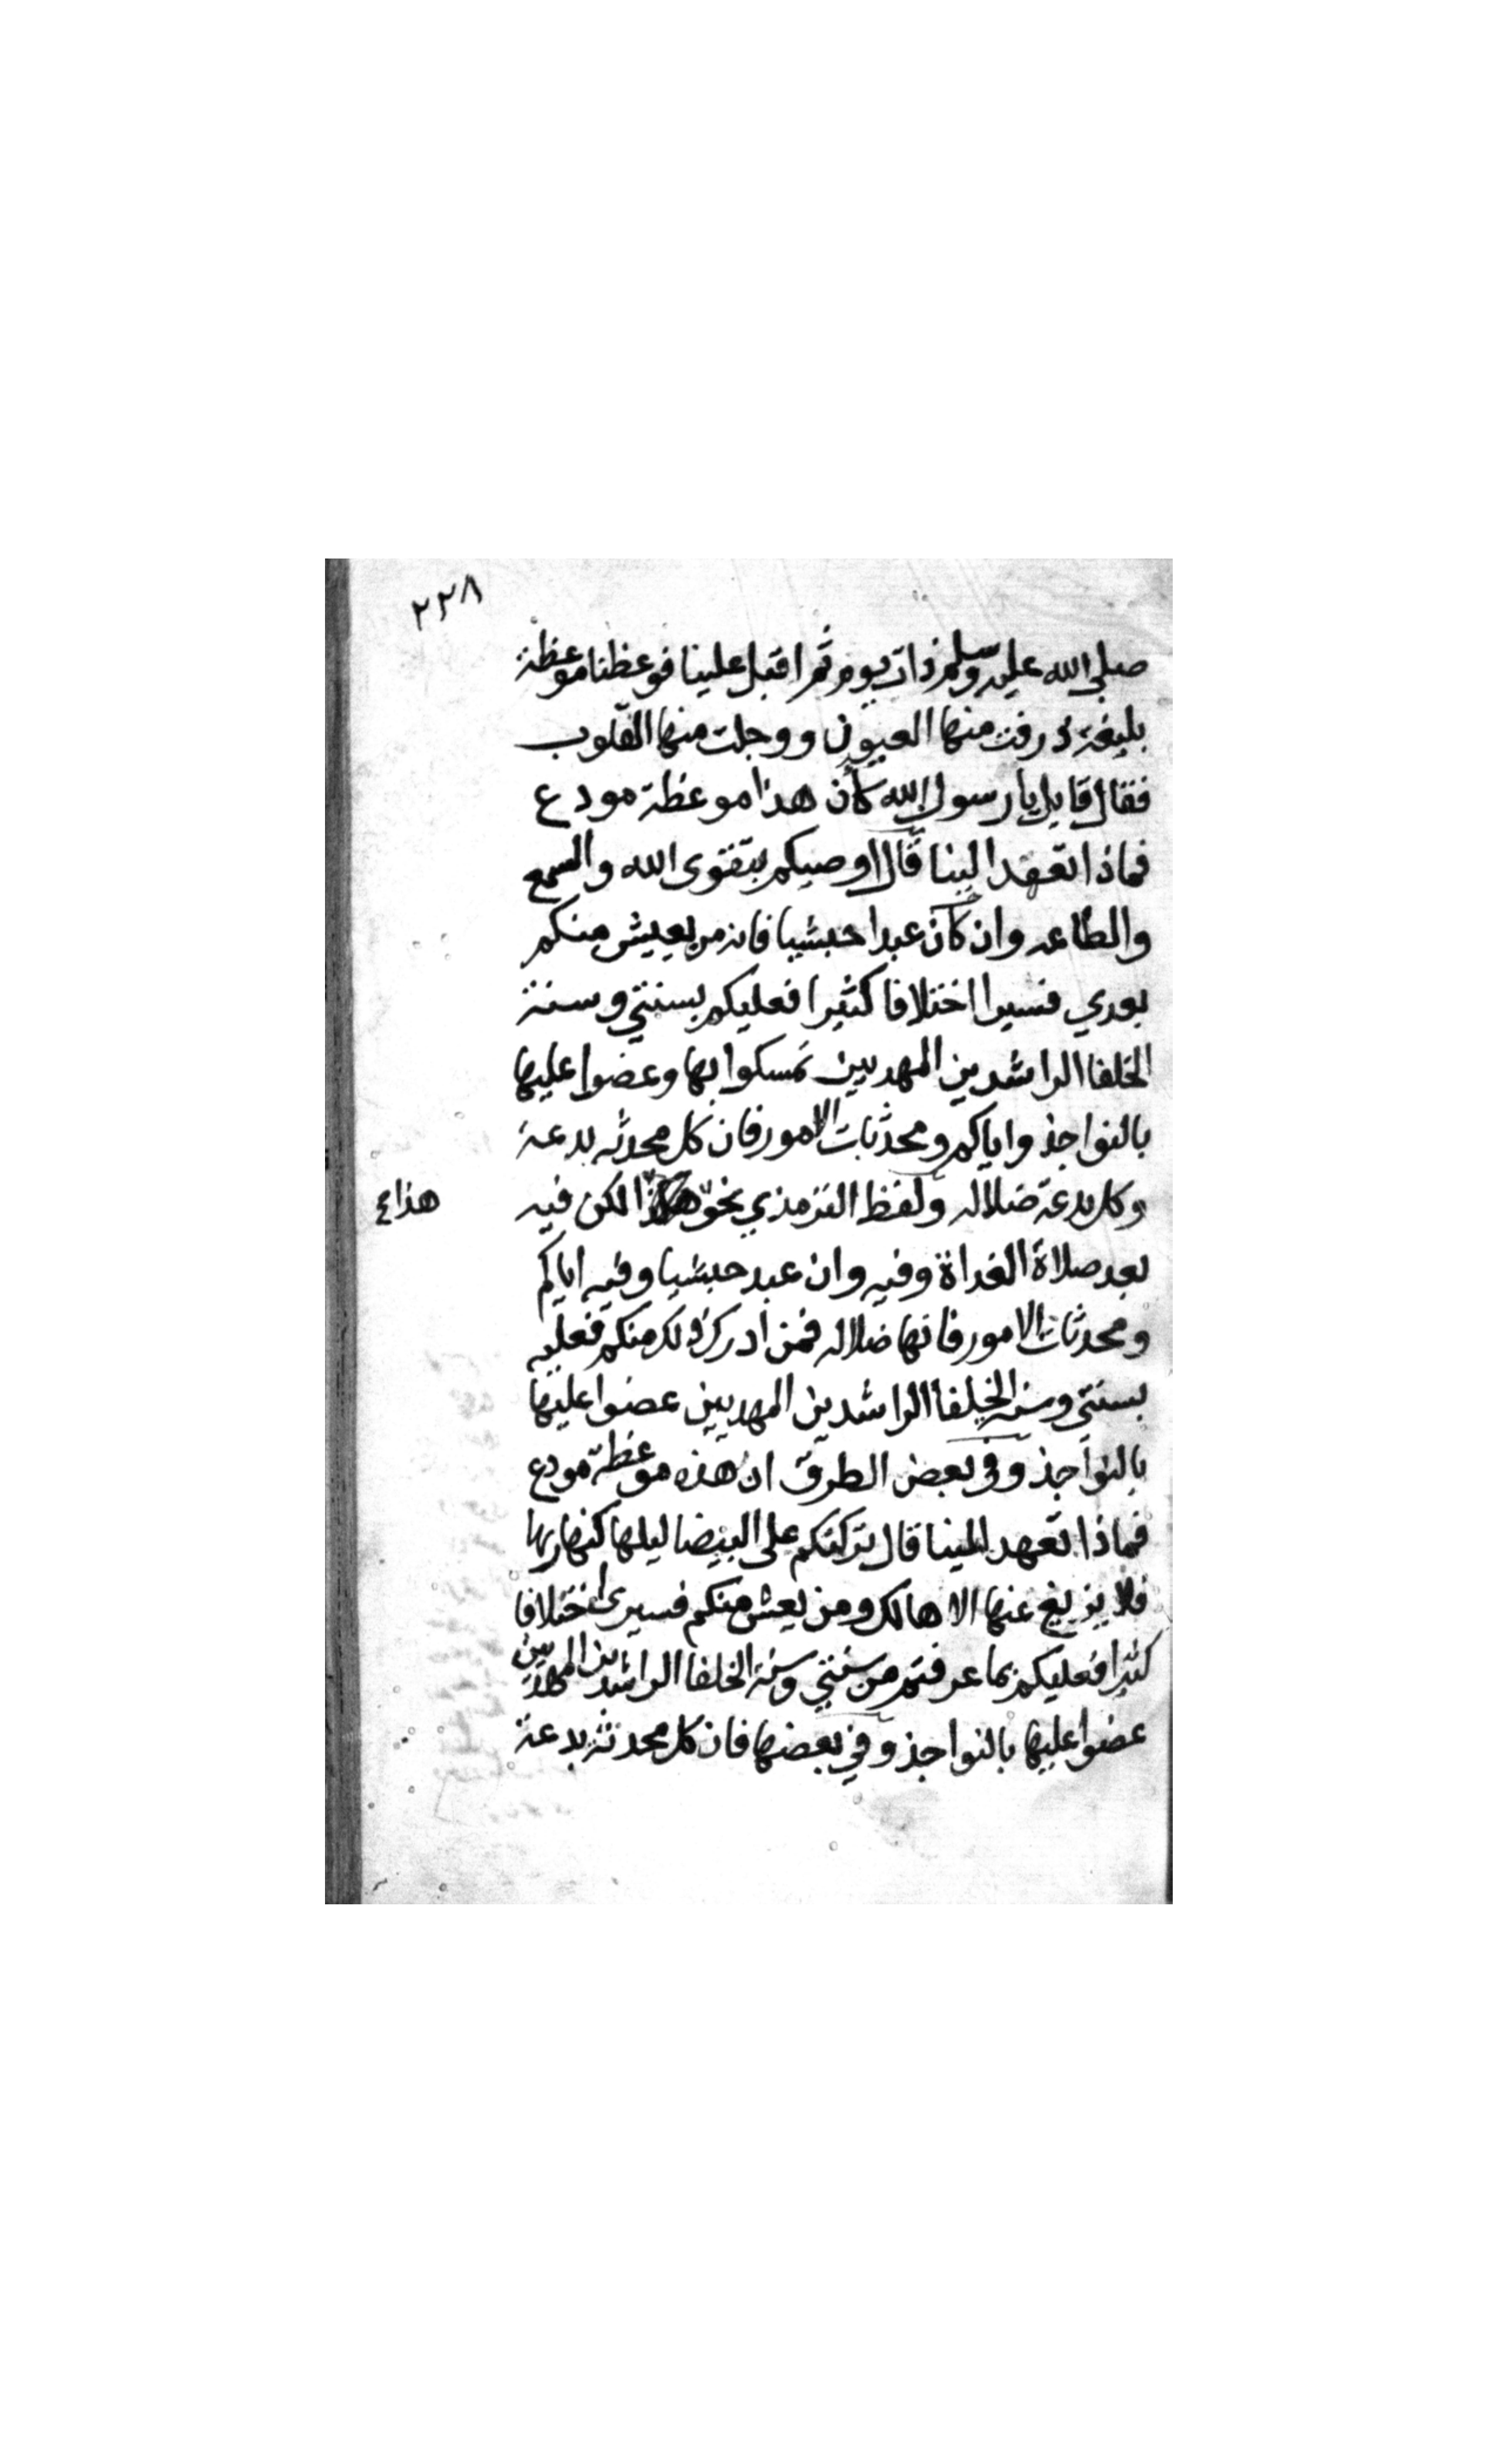 ٢٢٨
صلى الله عليه وسلم ذات يوم ثم اقبل علينا فوعظنا موعظة
بليغة ذرفت منها العيون ووجلت منها القلوب
فقال قايل يا رسول الله كأن هذا موعظة مودع
فماذا تعهد الينا قال اوصيكم بتقوى الله والسمع
والطاعه وان كان عبدا حبشيا فانه من يعيش منكم
بعدي فسيرا اختلافا كثيرا فعليكم بسنتي وسنة
الخلفا الراشدين المهديين تمسكوا بها وعضوا عليها
بالنواجذ واياكم ومحدثات الامور فان كل محدثه بدعة
وكل بدعة ضلاله ولفظ الترمذي نحو لكن فيه
هذا
بعد صلاة الغداة وفيه وان عبد حبشيا وفيه اياكم
ومحدثات الامور فانها ضلاله فمن أدرك ذلك منكم فعليه
بسنتي وسنة الخلفا الراشدين المهديين عضوا عليها
بالنواجذ وفي بعض الطرق ان هذه موعظة مودع
فماذا تعهد الينا قال تركتكم على البيضا ليلها كنهارها
فلا يزيغ عنها الا هالك ومن يعش منكم فسيرى اختلافا
كثيرا فعليكم بما عرفتم من سنتي وسنة الخلفا الراشدين المهديين
عضوا عليها بالنواجذ وفي بعضها فان كل محدثة بدعة